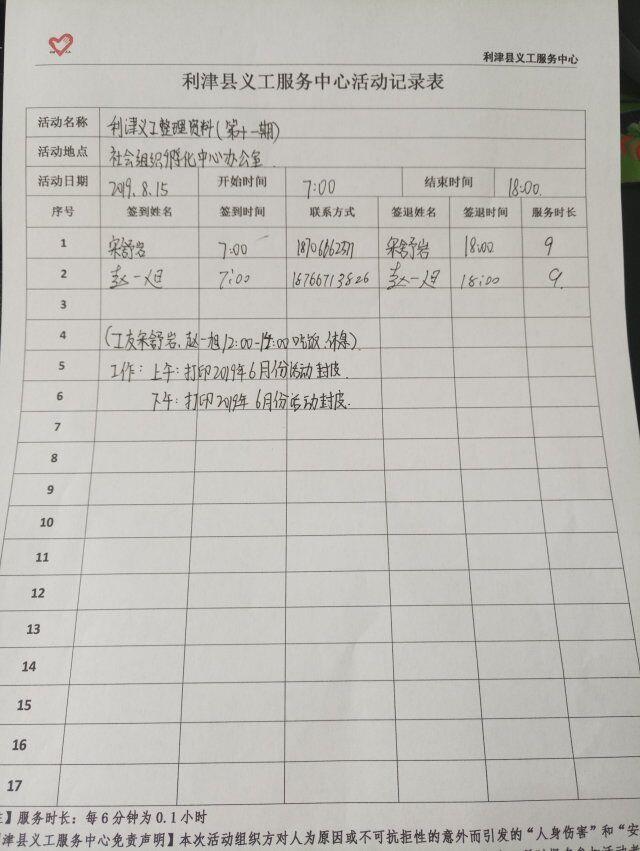 利津县义工服务中心
利津县义工服务中心活动记录表
活动名称 利津义工整理资料(第十一期)
活动地点 社会组织孵化中心办公室
活动日期 2019.8.15 开始时间 7:00 结束时间 18:00
序号 签到姓名 签到时间 联系方式 签退姓名 签退时间 服务时长
1 宋舒岩 7:00 宋舒岩 18:00 9
2 赵一旭 7:00 18766713826 赵一旭 18:00 9
3
4 (工友宋舒岩、赵一旭12:00-14:00吃饭、休息)
5 工作: 上午: 打印2019年6月份活动封皮
6 下午: 打印2019年6月份活动封皮.
7
8
9
10
11
12
13
14
15
16
17
】服务时长：每6分钟为0.1小时
津县义工服务中心免责声明】本次活动组织方对人为原因或不可抗拒性的意外而引发的“人身伤害”和“安